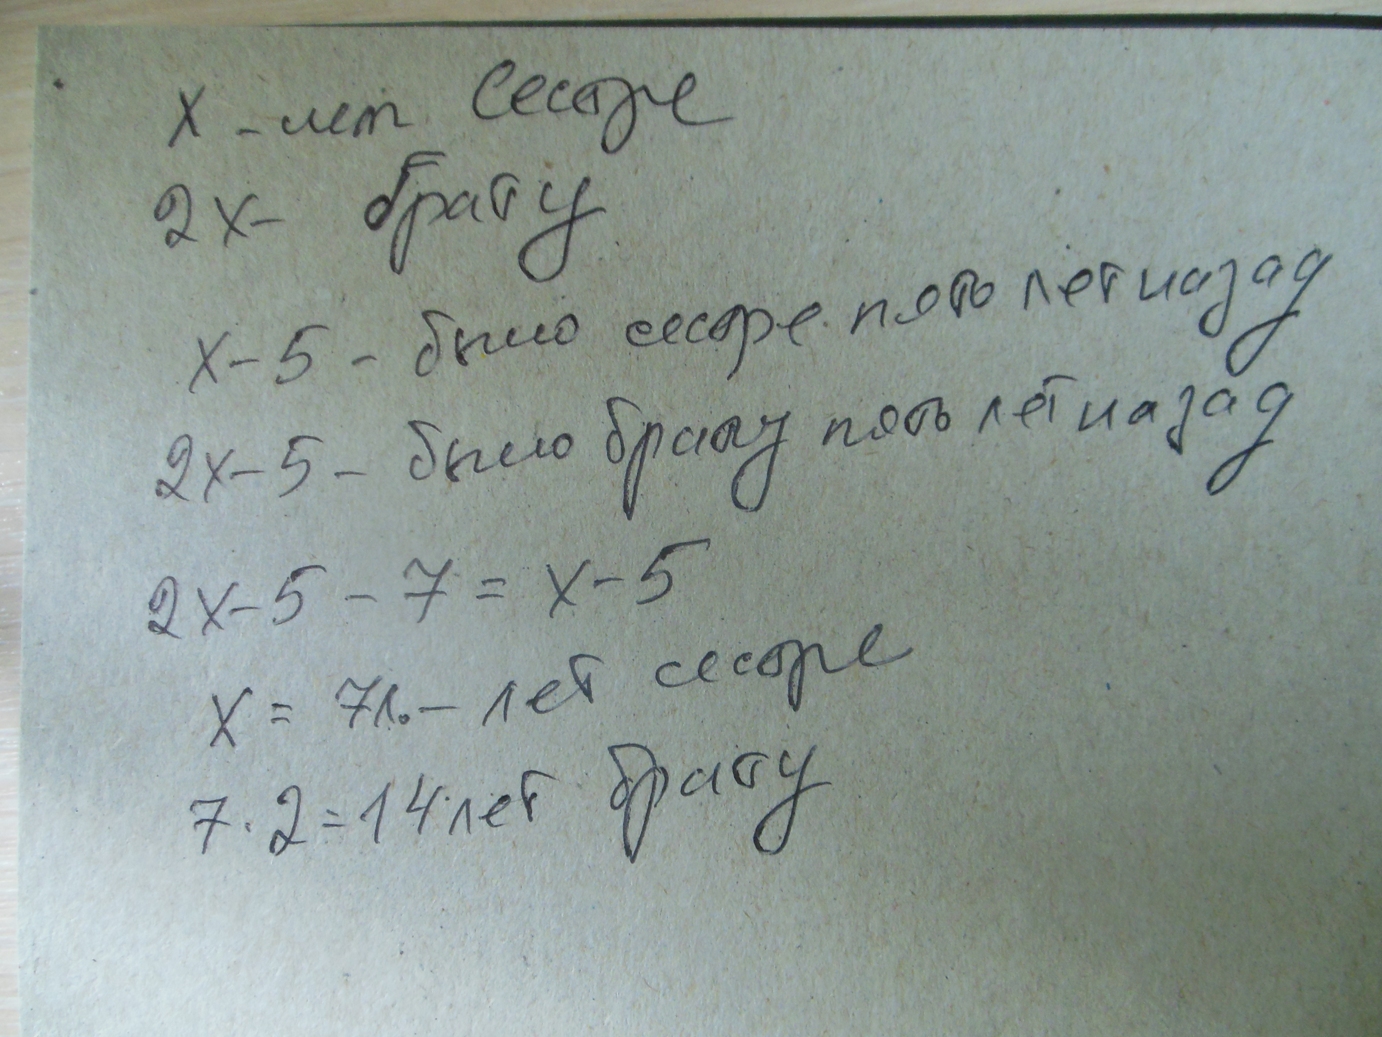 x - лет сестре
2x - брату
x - 5 - было сестре пять лет назад
2x - 5 - было брату пять лет назад
2x - 5 - 7 = x - 5
x = 7л. - лет сестре
7 · 2 = 14 лет брату